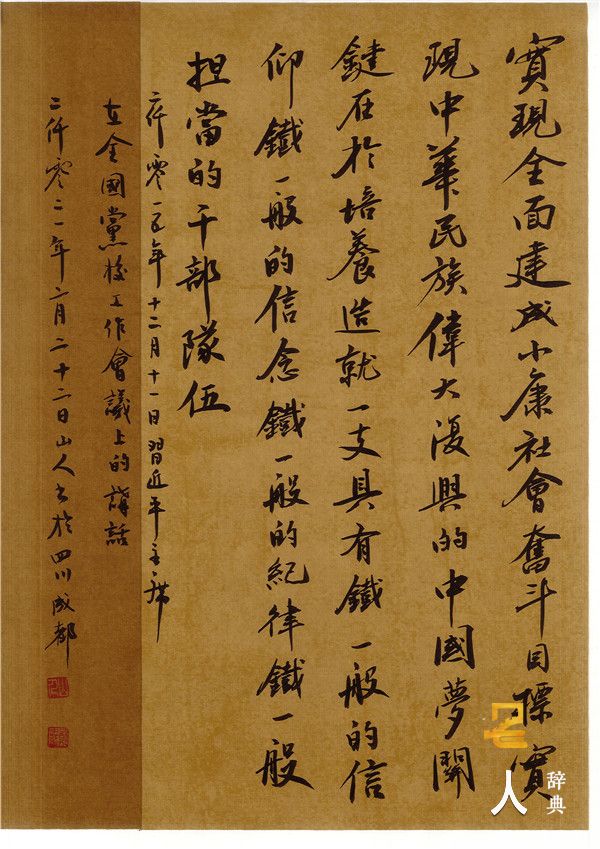 實現全面建成小康社會奮斗目標實
現中華民族偉大復興的中國夢關
鍵在於培養造就一支具有鐵一般的信
仰鐵一般的信念鐵一般的紀律鐵一般
担當的干部隊伍
零一五年十二月十一日習近平主席
在全國黨校工作會議上的講話
二仟零二一年六月二十二日山人書於四川成都
名
人
辞典